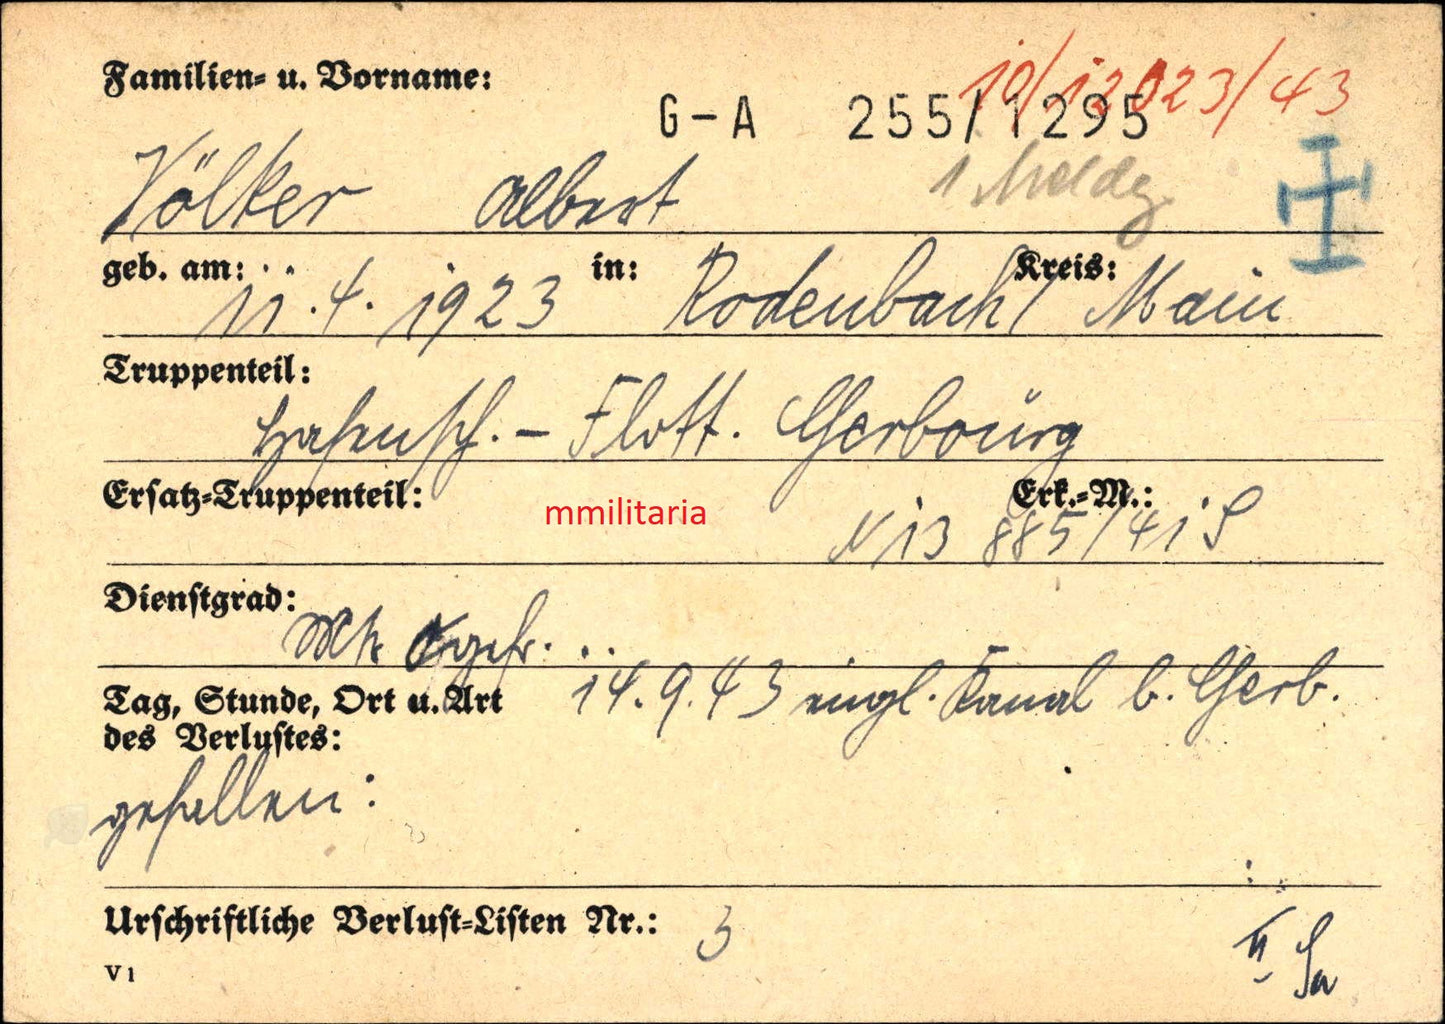 Familien- u. Vorname:
10/12023/43
G-A 255/1295
1 Meldg.
Völker Albert
geb. am: 11.4.1923 in: Rodenbach/ Main Kreis:
Truppenteil:
Hafensch.-Flott. Cherbourg
Ersatz-Truppenteil: Erk.-M.:
mmilitaria
N 13 885/41 S
Dienstgrad:
gefr.
Tag, Stunde, Ort u. Art 14.9.43 engl. Kanal b. Cherb.
des Verlustes:
gefallen:
Urschriftliche Verlust-Listen Nr.: 3
V 1